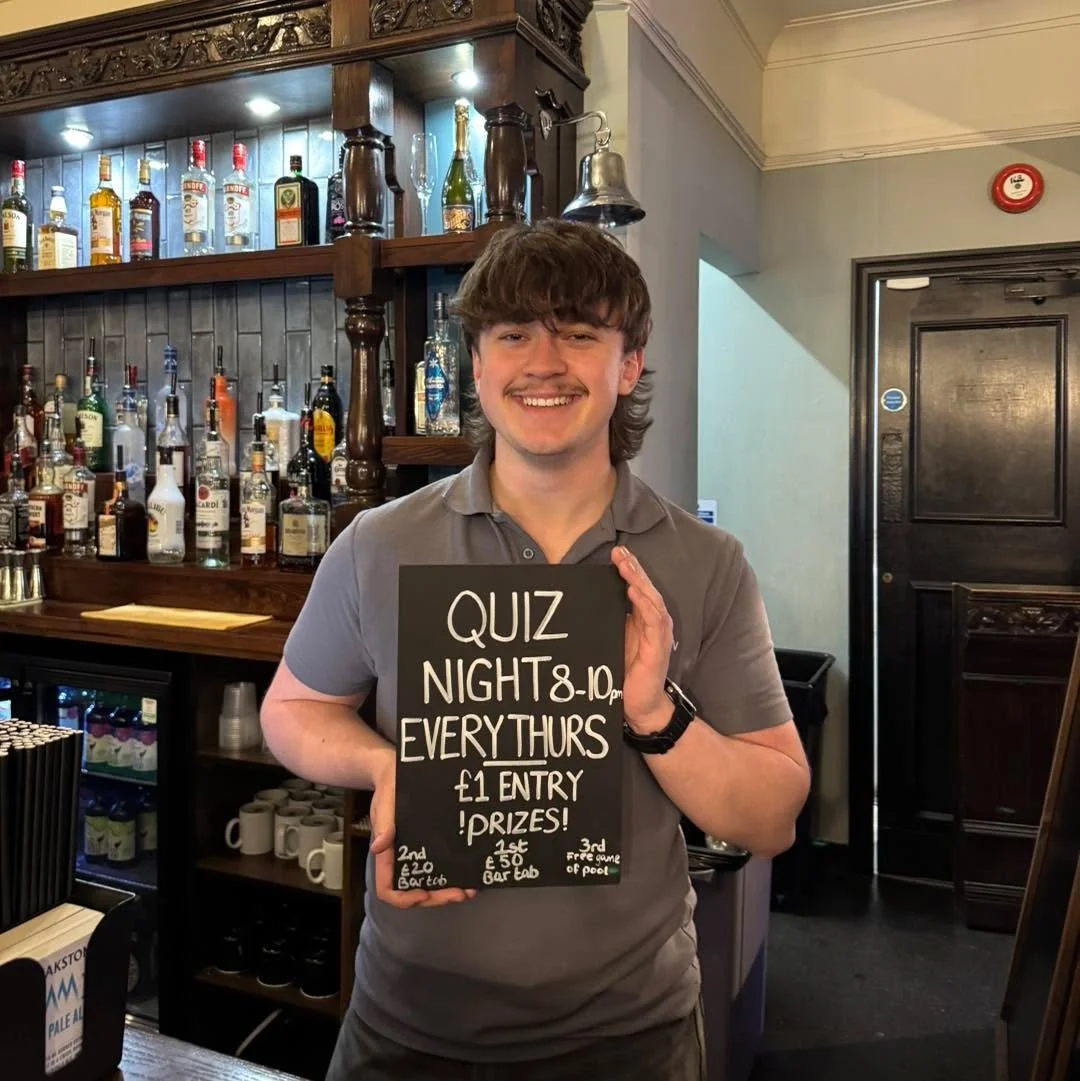 QUIZ
NIGHT 8-10pm
EVERY THURS
£1 ENTRY
!PRIZES!
1st
£50
Bar tab
2nd
£20
Bar tab
3rd
Free game
of pool
SMIRNOFF
BACARDI
PALE AL